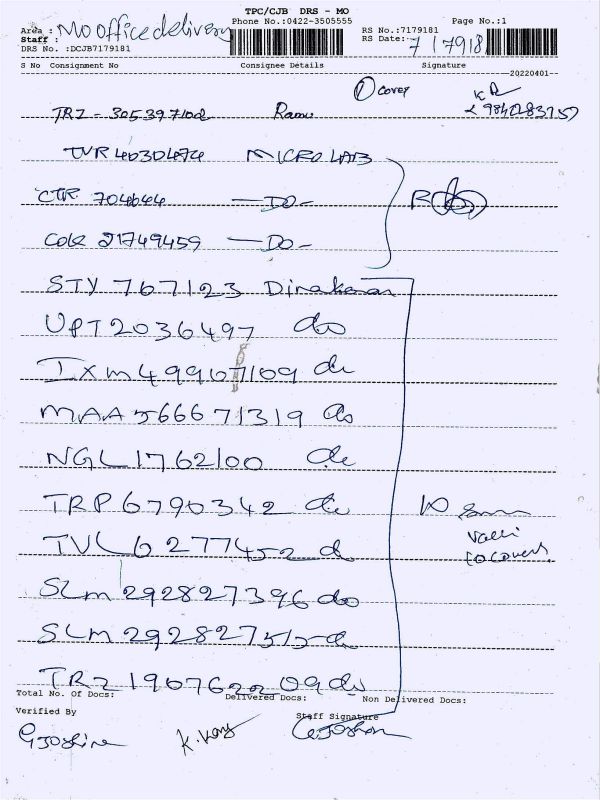 TPC/CJB DRS - MO
Area : Mo office delivery Phone No.:0422-3505555 Page No.:1
Staff : RS No.:7179181
DRS No. :DCJB7179181 RS Date: 7179181
S No Consignment No Consignee Details Signature
20220401--
① cover
TRZ - 305397102 Ramu 9842283757
TVR 40304674 MICRO LAB
CTR 704644 —DO-
COK 21749459 —DO-
STY 767123 Dinakaran
UPT 2036497 do
IXM 49907109 do
MAA 566671319 do
NGL 1762100 do
TRP 6790342 do 10
Valli
TVL 6277452 do 10 covers
SLM 292827396 do
SLM 292827515 do
TRZ 190762209 do
Total No. Of Docs: Delivered Docs: Non Delivered Docs:
Verified By Staff Signature